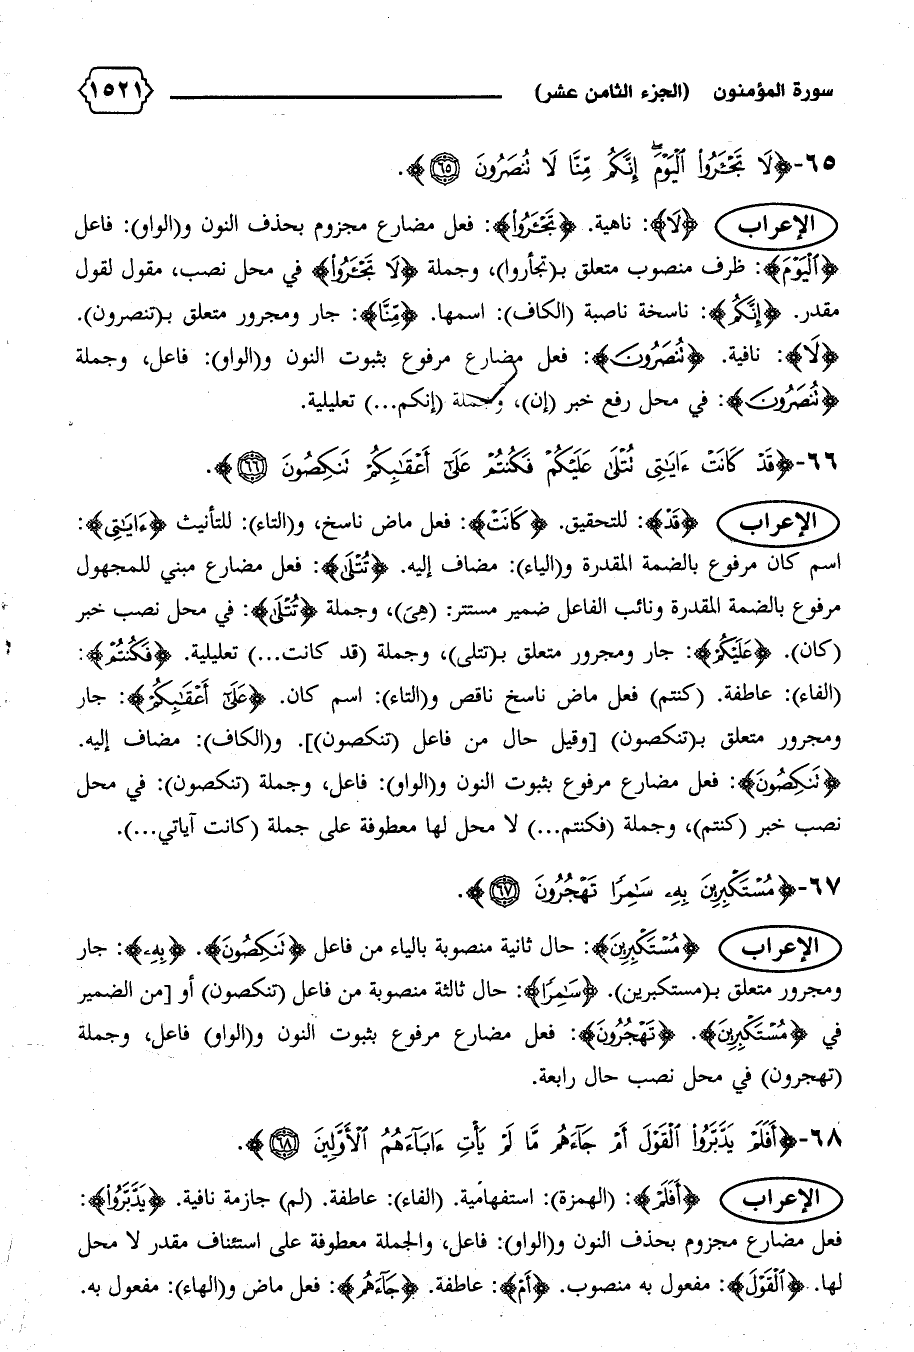 سورة المؤمنون (الجزء الثامن عشر) ١٥٢١
٦٥-﴿لَا تَجْـَٔرُوا۟ ٱلْيَوْمَ ۖ إِنَّكُم مِّنَّا لَا تُنصَرُونَ ٦٥﴾.
الإعراب ﴿لَا﴾: ناهية. ﴿تَجْـَٔرُوا۟﴾: فعل مضارع مجزوم بحذف النون و(الواو): فاعل
﴿ٱلْيَوْمَ﴾: ظرف منصوب متعلق بـ(تجأروا)، وجملة ﴿لَا تَجْـَٔرُوا۟﴾ في محل نصب، مقول لقول
مقدر. ﴿إِنَّكُم﴾: ناسخة ناصبة (الكاف): اسمها. ﴿مِّنَّا﴾: جار ومجرور متعلق بـ(تنصرون).
﴿لَا﴾: نافية. ﴿تُنصَرُونَ﴾: فعل مضارع مرفوع بثبوت النون و(الواو): فاعل، وجملة
﴿تُنصَرُونَ﴾: في محل رفع خبر (إن)، وجملة (إنكم...) تعليلية.
٦٦-﴿قَدْ كَانَتْ ءَايَـٰتِى تُتْلَىٰ عَلَيْكُمْ فَكُنتُمْ عَلَىٰٓ أَعْقَـٰبِكُمْ تَنكِصُونَ ٦٦﴾.
الإعراب ﴿قَدْ﴾: للتحقيق. ﴿كَانَتْ﴾: فعل ماض ناسخ، و(التاء): للتأنيث ﴿ءَايَـٰتِى﴾:
اسم كان مرفوع بالضمة المقدرة و(الياء): مضاف إليه. ﴿تُتْلَىٰ﴾: فعل مضارع مبني للمجهول
مرفوع بالضمة المقدرة ونائب الفاعل ضمير مستتر: (هِيَ)، وجملة ﴿تُتْلَىٰ﴾: في محل نصب خبر
(كان). ﴿عَلَيْكُمْ﴾: جار ومجرور متعلق بـ(تتلى)، وجملة (قد كانت...) تعليلية. ﴿فَكُنتُمْ﴾:
(الفاء): عاطفة. (كنتم) فعل ماض ناسخ ناقص و(التاء): اسم كان. ﴿عَلَىٰٓ أَعْقَـٰبِكُمْ﴾: جار
ومجرور متعلق بـ(تنكصون) [وقيل حال من فاعل (تنكصون)]. و(الكاف): مضاف إليه.
﴿تَنكِصُونَ﴾: فعل مضارع مرفوع بثبوت النون و(الواو): فاعل، وجملة (تنكصون): في محل
نصب خبر (كنتم)، وجملة (فكنتم...) لا محل لها معطوفة على جملة (كانت آياتي...).
٦٧-﴿مُسْتَكْبِرِينَ بِهِۦ سَـٰمِرًا تَهْجُرُونَ ٦٧﴾.
الإعراب ﴿مُسْتَكْبِرِينَ﴾: حال ثانية منصوبة بالياء من فاعل ﴿تَنكِصُونَ﴾. ﴿بِهِۦ﴾: جار
ومجرور متعلق بـ(مستكبرين). ﴿سَـٰمِرًا﴾: حال ثالثة منصوبة من فاعل (تنكصون) أو [من الضمير
في ﴿مُسْتَكْبِرِينَ﴾. ﴿تَهْجُرُونَ﴾: فعل مضارع مرفوع بثبوت النون و(الواو) فاعل، وجملة
(تهجرون) في محل نصب حال رابعة.
٦٨-﴿أَفَلَمْ يَدَّبَّرُوا۟ ٱلْقَوْلَ أَمْ جَآءَهُم مَّا لَمْ يَأْتِ ءَابَآءَهُمُ ٱلْأَوَّلِينَ ٦٨﴾.
الإعراب ﴿أَفَلَمْ﴾: (الهمزة): استفهامية. (الفاء): عاطفة. (لم) جازمة نافية. ﴿يَدَّبَّرُوا۟﴾:
فعل مضارع مجزوم بحذف النون و(الواو): فاعل، والجملة معطوفة على استئناف مقدر لا محل
لها. ﴿ٱلْقَوْلَ﴾: مفعول به منصوب. ﴿أَمْ﴾: عاطفة. ﴿جَآءَهُم﴾: فعل ماض و(الهاء): مفعول به.